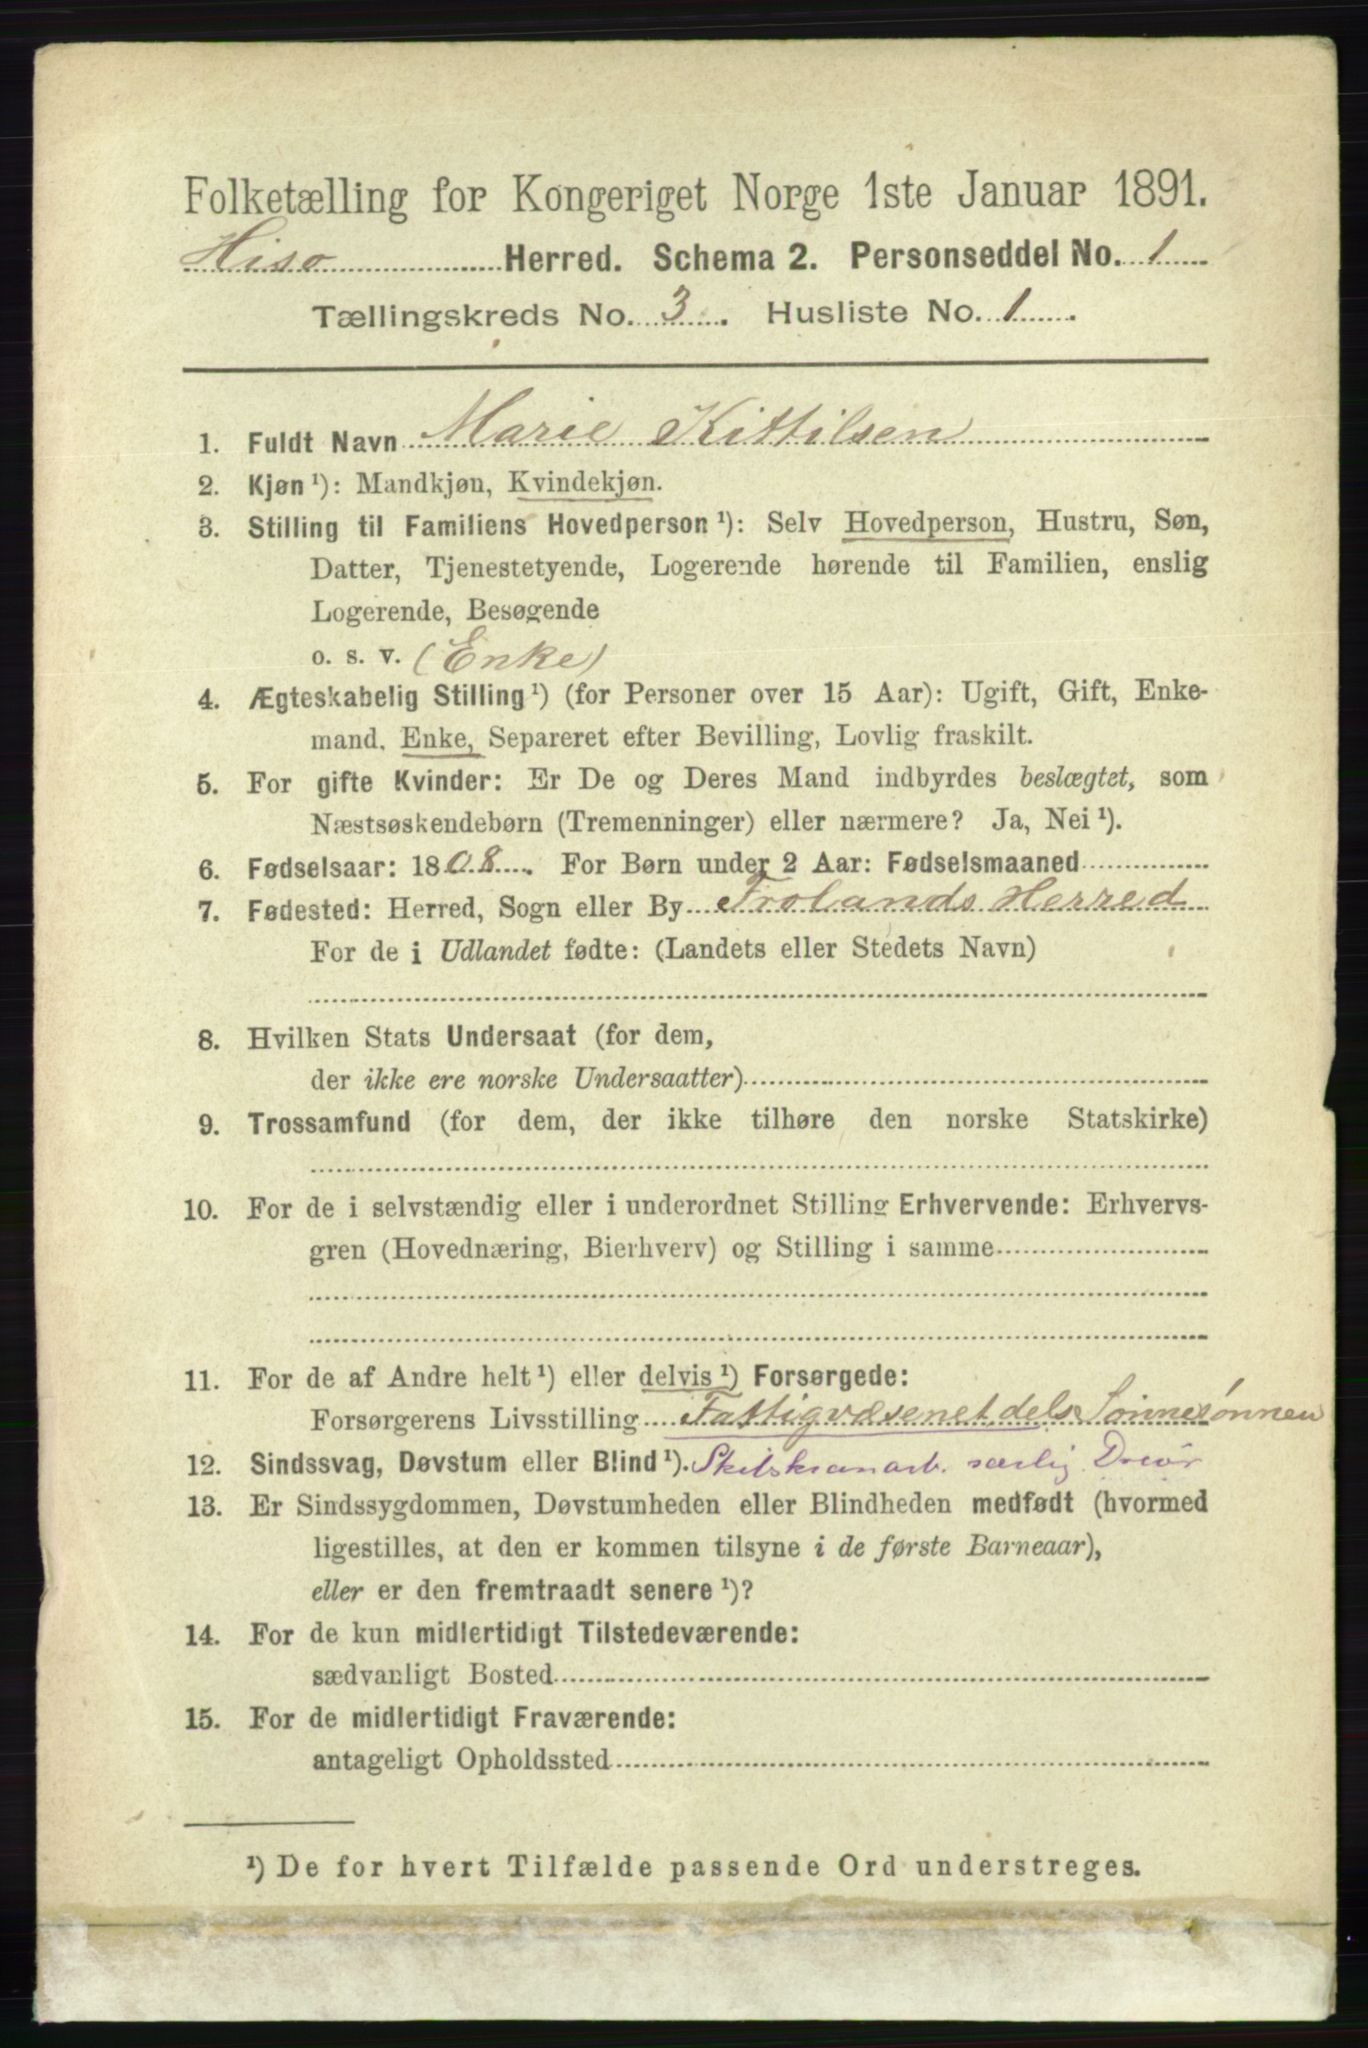 Folketælling for Kongeriget Norge 1ste Januar 1891.
Hisø Herred. Schema 2. Personseddel No. 1
Tællingskreds No. 3. Husliste No. 1.
1. Fuldt Navn Marie Kittilsen
2. Kjøn ¹): Mandkjøn, Kvindekjøn.
3. Stilling til Familiens Hovedperson ¹): Selv Hovedperson, Hustru, Søn,
Datter, Tjenestetyende, Logerende hørende til Familien, enslig
Logerende, Besøgende
o. s. v. (Enke)
4. Ægteskabelig Stilling ¹) (for Personer over 15 Aar): Ugift, Gift, Enke-
mand, Enke, Separeret efter Bevilling, Lovlig fraskilt.
5. For gifte Kvinder: Er De og Deres Mand indbyrdes beslægtet, som
Næstsøskendebørn (Tremenninger) eller nærmere? Ja, Nei ¹).
6. Fødselsaar: 1808. For Børn under 2 Aar: Fødselsmaaned
7. Fødested: Herred, Sogn eller By Frolands Herred
For de i Udlandet fødte: (Landets eller Stedets Navn)
8. Hvilken Stats Undersaat (for dem,
der ikke ere norske Undersaatter)
9. Trossamfund (for dem, der ikke tilhøre den norske Statskirke)
10. For de i selvstændig eller i underordnet Stilling Erhvervende: Erhvervs-
gren (Hovednæring, Bierhverv) og Stilling i samme
11. For de af Andre helt ¹) eller delvis ¹) Forsørgede:
Forsørgerens Livsstilling Fattigvæsenet, dels Sønnesønnen
12. Sindssvag, Døvstum eller Blind ¹). særlig
13. Er Sindssygdommen, Døvstumheden eller Blindheden medfødt (hvormed
ligestilles, at den er kommen tilsyne i de første Barneaar),
eller er den fremtraadt senere ¹)?
14. For de kun midlertidigt Tilstedeværende:
sædvanligt Bosted
15. For de midlertidigt Fraværende:
antageligt Opholdssted
¹) De for hvert Tilfælde passende Ord understreges.